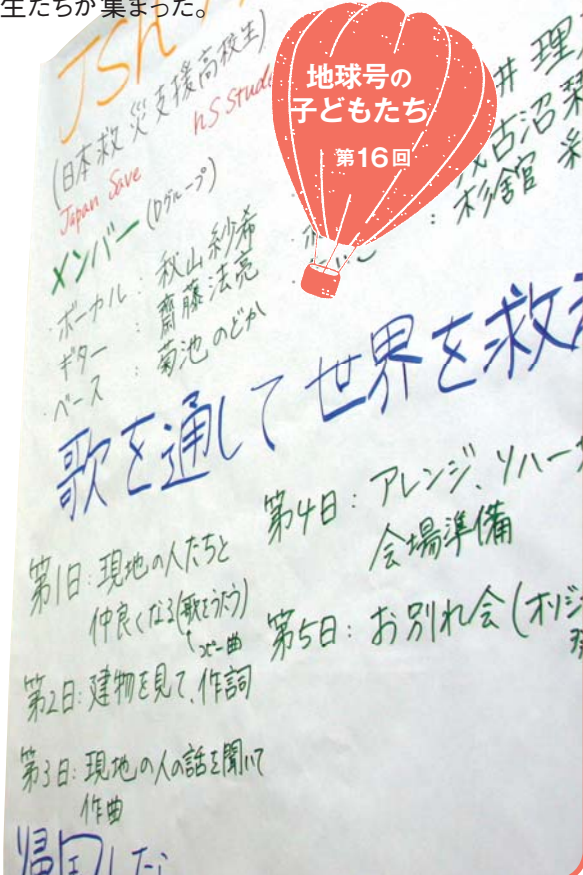 生たちが集まった。
地球号の
子どもたち
第16回
JSh
(日本救災支援高校生)
Japan Save hS Stude
メンバー (Dグループ)
・ボーカル：秋山紗希
・ギター：齋藤法亮
・ベース：菊池のどか
井 理
古沼
杉舘官
歌を通して世界を救
第1日：現地の人たちと
仲良くなる(歌をうたう)
コピー曲
第2日：建物を見て、作詞
第3日：現地の人の話を聞いて
作曲
第4日：アレンジ、リハー
会場準備
第5日：お別れ会(オリジ
帰国したら